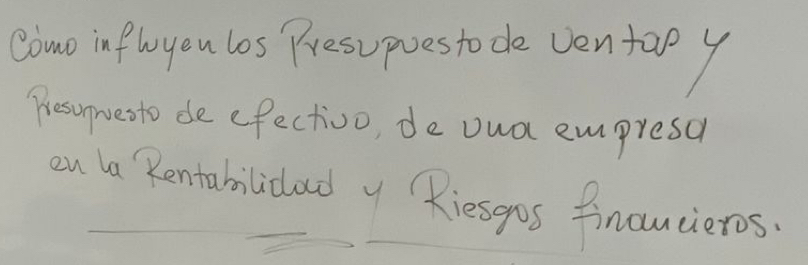 Cómo influyen los Presupuesto de Ventas y
Presupuesto de efectivo, de una empresa
en la Rentabilidad y Riesgos financieros.